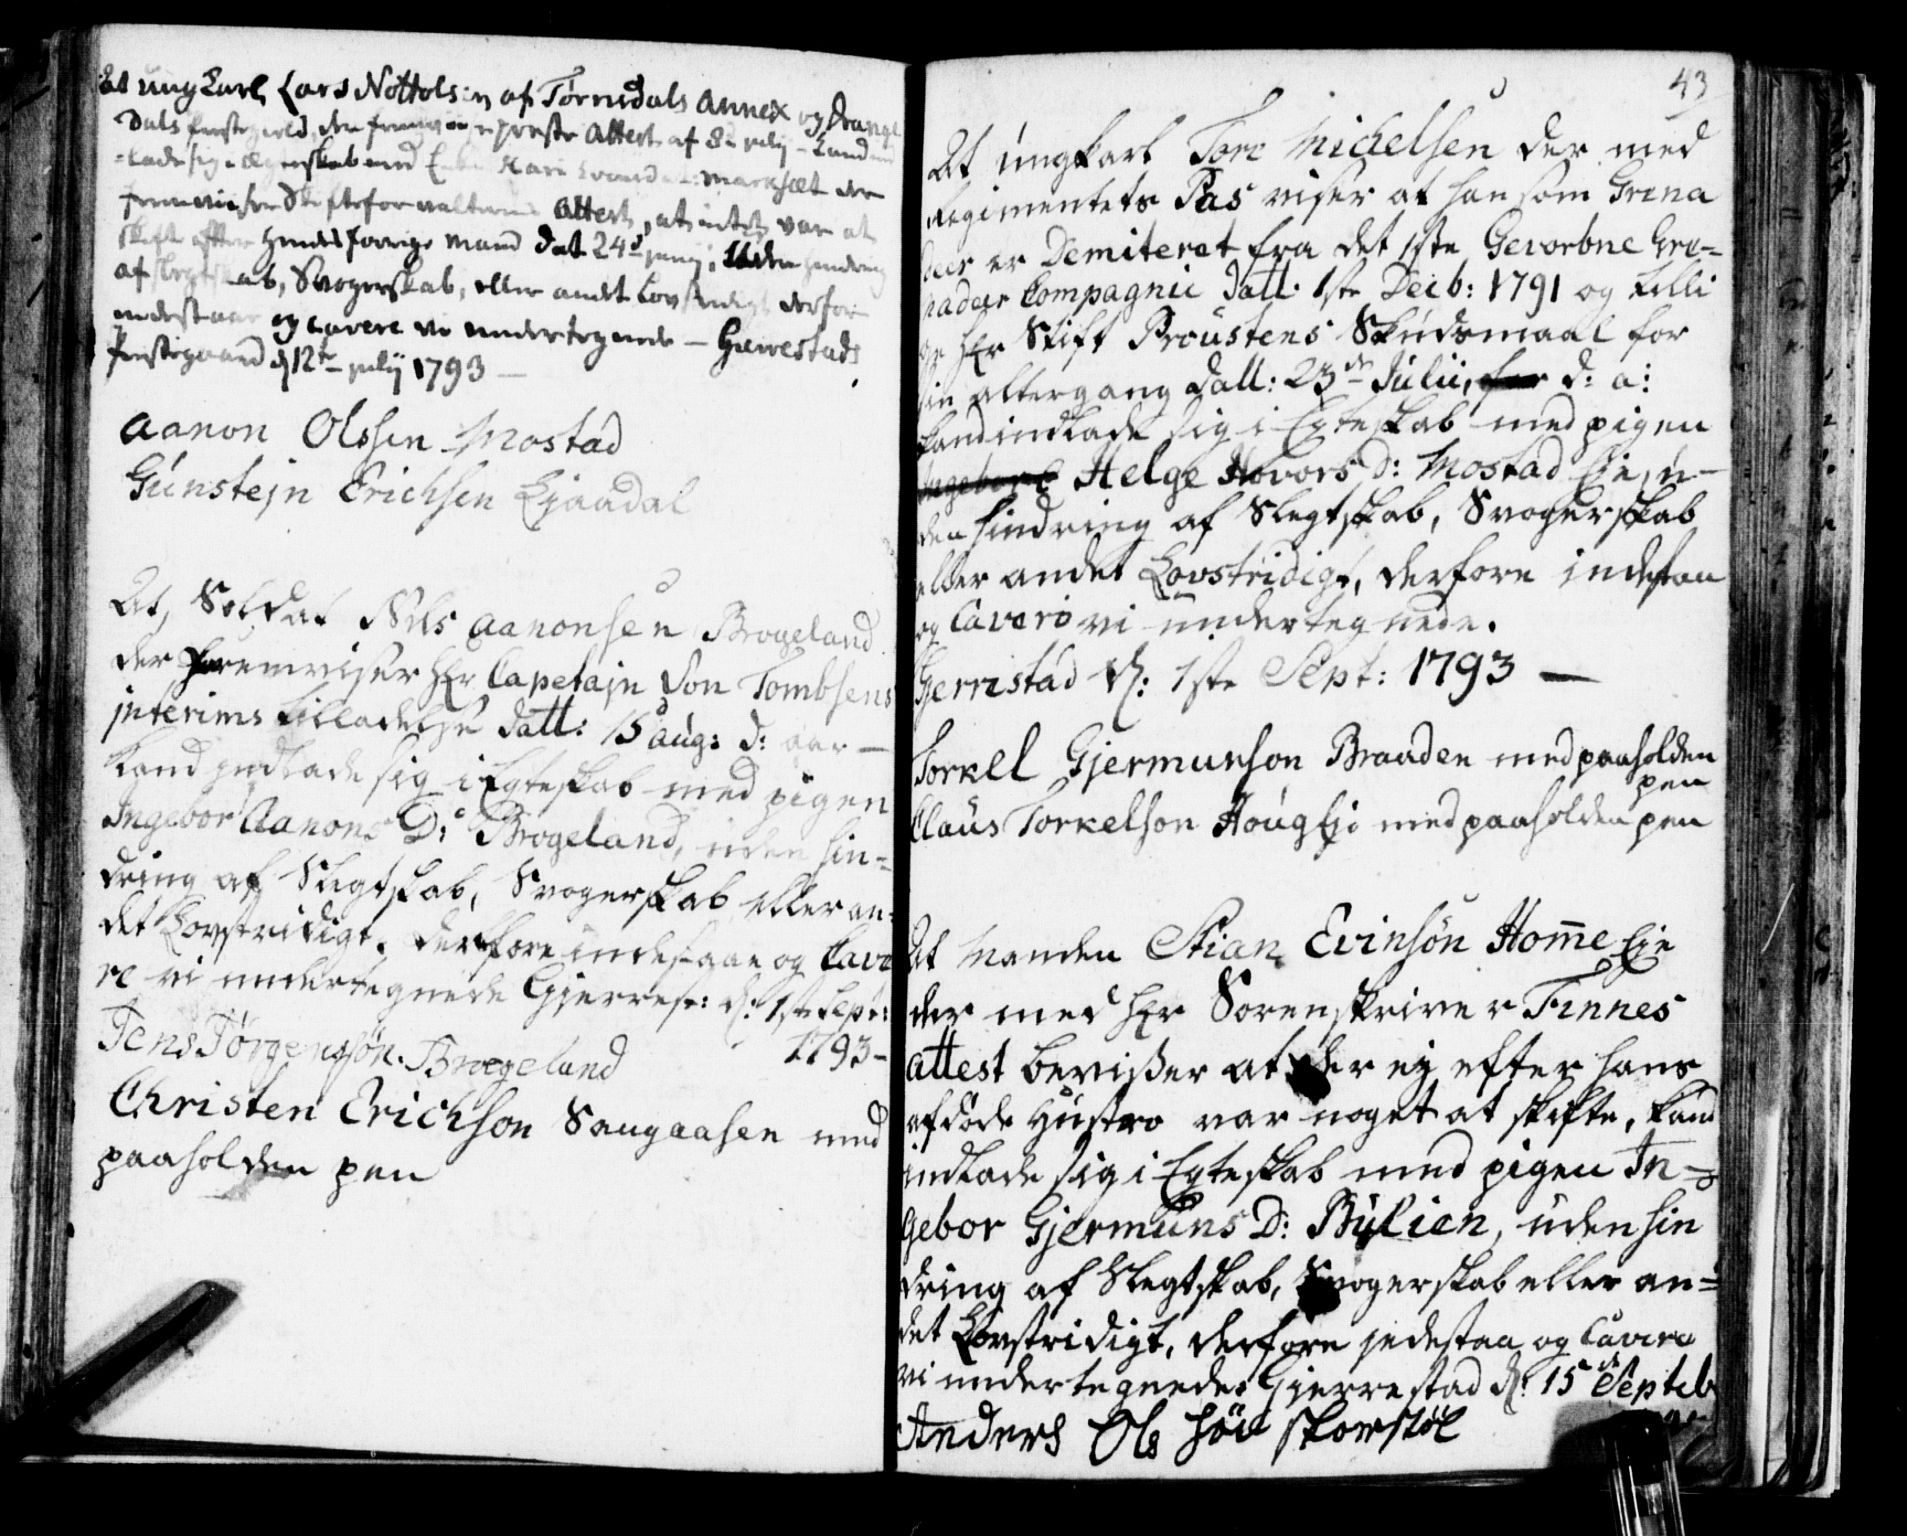 At ung Karl Lars Nottolsen af Tørnisdals Annex og Drange
Dals præstegield, der fremviiser præste Attest af 8de july – kand ind
-lade sig i ægteskab med Enke Kari Marksæt der
fremviiser Skifteforvalterens Attest, at intet var at
skifte efter hendes forrige Mand dat 24de junij, uden hindring
af slegtskab, Svogerskab, eller andet Lovstridigt derfor
indestaae og cavere vi undertegnede – Gierrestads
Præstegaard d 12te julij 1793 –
Aanon Olssen Mostad
Gunstejn Erichsen Ljaadal
At, Soldat Nils Aanonsen Brogeland
der fremviser Hr Capetajn von Tombsens
interims tilladelse datt: 15 aug: d: aar –
kand jndlade sig i Egteskab med pigen
Ingebor Aanons D: Brogeland, uden hin=
dring af Slegtskab, Svogerskab eller an=
det Lovstridigt. derfore indestaae og Cave
re vi undertegnede Gjerrest: d: 1ste Sept:
1793 –
Jens Jørgensøn Brogeland
Christen Erichson Saugaasen med
paaholden pen
43
At ungkarl Tore Michelsen der med
Regimentets Pas viser at han som Grena
deer er Demiteret fra det 1ste Gevorbne Gre=
nadeer Compagnie datt: 1ste Decb: 1791 og tilli
ge Hr Stift Proustens Skudsmaal for
sin altergang datt: 23de Julii, for d: a:
kand indlade sig i Egteskab med pigen
Ingeborg Helge Hovors D: Mostad Eje, u–
den hindring af Slegtskab, Svogerskab
eller andet Lovstridigt, derfore indestaa
og Cavere vi undertegnede.
Gjerrestad d: 1ste Sept: 1793 –
Torkel Gjermunson Braaden med paaholden
pen
Claus Torkelson Houg Eje med paaholden pen
At Manden Stian Evinsøn Home Eje
der med Hr Sorenskriver Finnes
attest beviser at der ej efter hans
afdøde Hustro var noget at skifte, kand
indlade sig i Egteskab med pigen In=
gebor Gjermuns D: Bulien, uden hin
dring af Slegtskab, Svogerskab eller an=
det Lovstridigt, derfore jndestaa og Cavere
vi undertegnede. Gjerrestad d: 15de Septeb
Anders Ols søn skorstøl